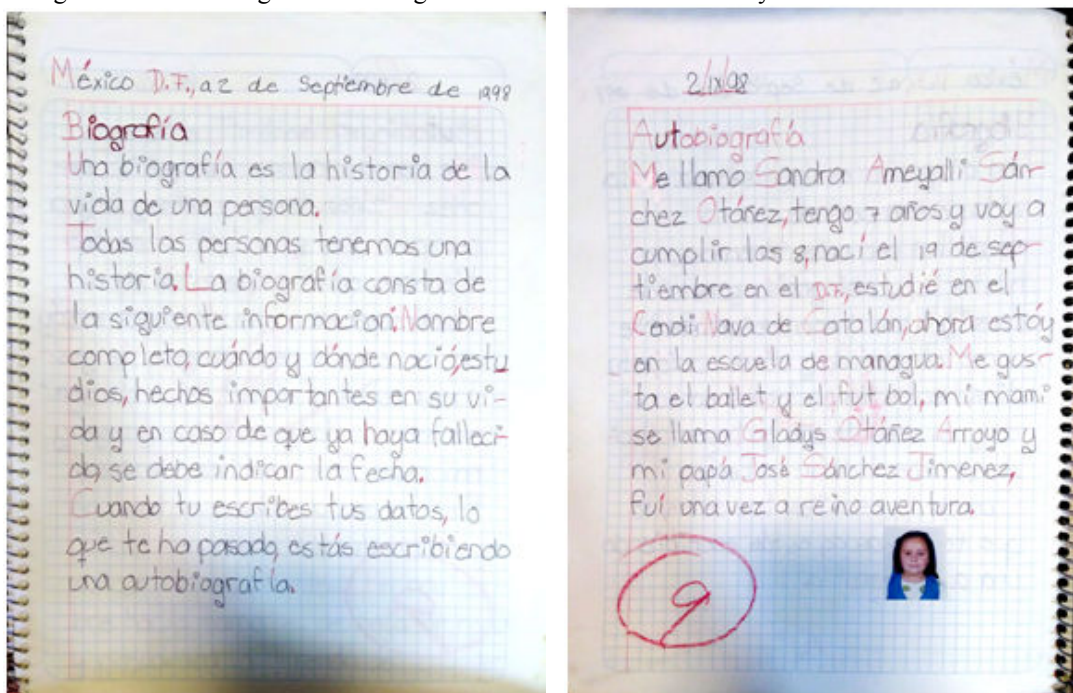 México D.F., a 2 de Septiembre de 1998
Biografía
Una biografía es la historia de la
vida de una persona.
Todas las personas tenemos una
historia. La biografía consta de
la siguiente información: Nombre
completo, cuándo y dónde nació, estu
dios, hechos importantes en su vi-
da y en caso de que ya haya falleci-
do, se debe indicar la fecha.
Cuando tu escribes tus datos, lo
que te ha pasado, estás escribiendo
una autobiografía.
2/IX/98
Autobiografía
Me llamo Sandra Ameyalli Sán-
chez Otáñez, tengo 7 años y voy a
cumplir los 8, nací el 19 de sep-
tiembre en el D.F., estudié en el
Cendi Nava de Catalán, ahora estóy
en la escuela de managua. Me gus-
ta el ballet y el fut bol, mi mami
se llama Gladys Otáñez Arroyo y
mi papá José Sánchez Jimenez,
fuí una vez a reino aventura.
9